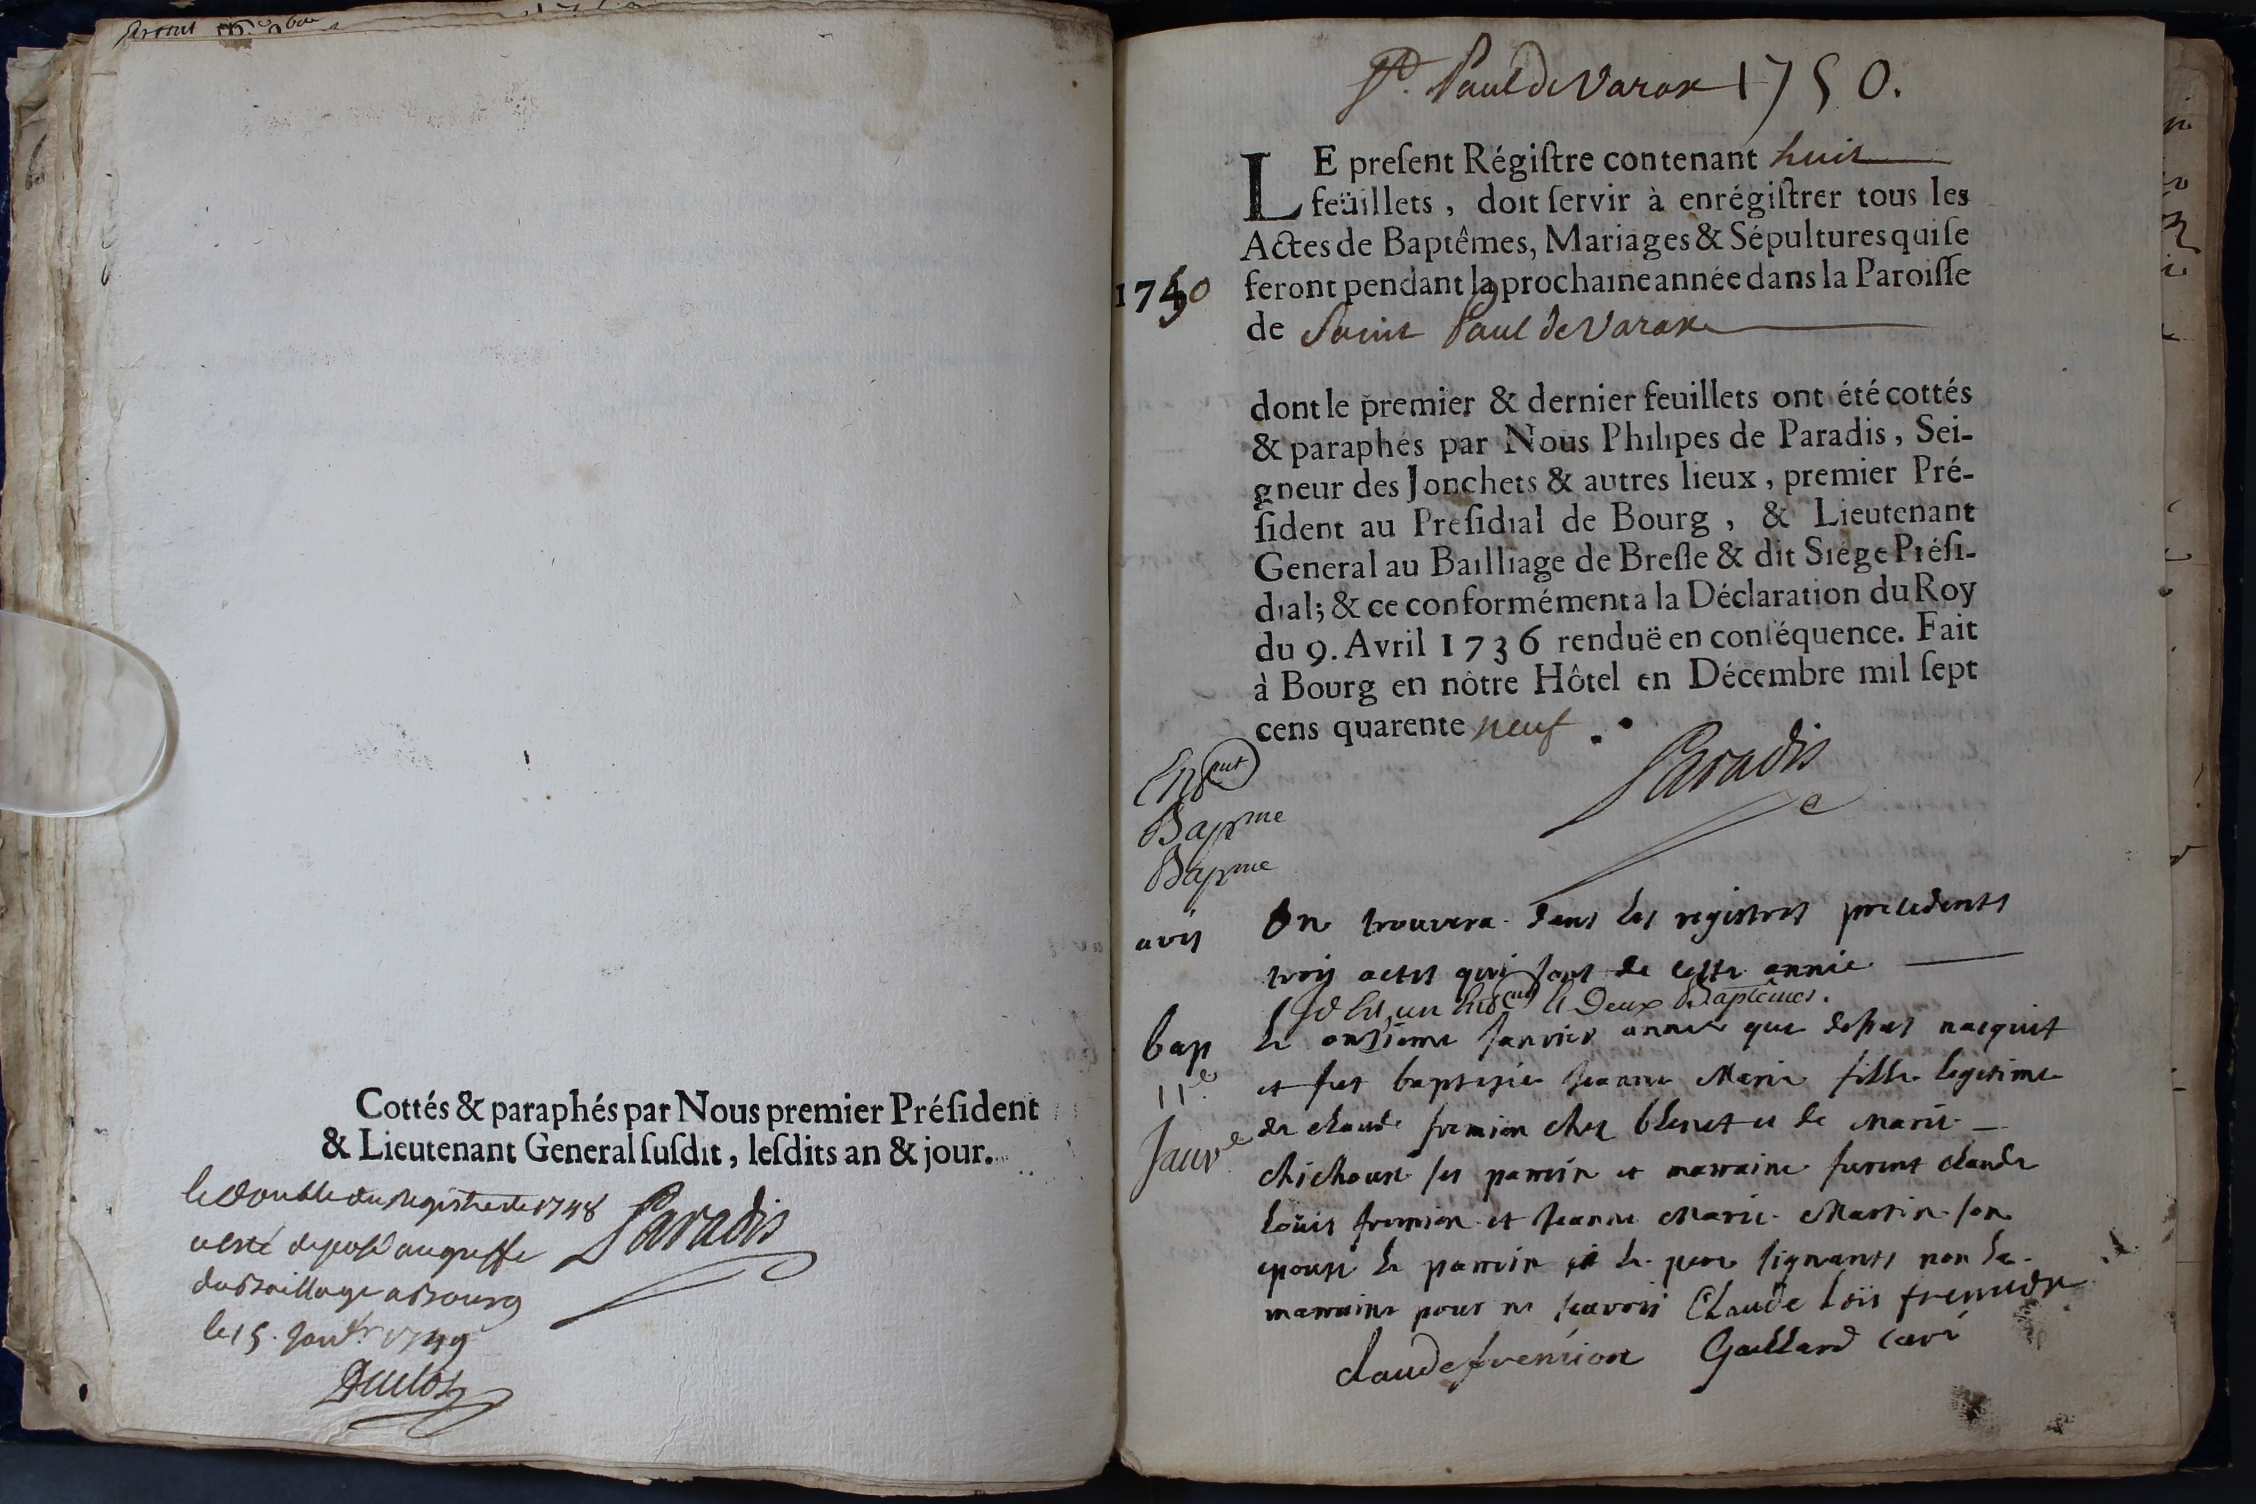 Cottés & paraphés par Nous premier Préſident
& Lieutenant General ſuſdit, leſdits an & jour.
le double du Registre de 1748
a esté deposé au greffe
du Bailliage a Bourg
le 15. Janv.r 1749
Paradis
St. Paul de Varax 1750.
LE preſent Régiſtre contenant huit
feüillets, doit ſervir à enrégiſtrer tous les
Actes de Baptêmes, Mariages & Sépultures qui ſe
1750
feront pendant la prochaine année dans la Paroiſſe
de Saint Paul de Varax
dont le premier & dernier feuillets ont été cottés
& paraphés par Nous Philipes de Paradis, Sei-
gneur des Jonchets & autres lieux, premier Pré-
ſident au Preſidial de Bourg, & Lieutenant
General au Bailliage de Breſſe & dit Siége Préſi-
dial; & ce conformément a la Déclaration du Roy
du 9. Avril 1736 renduë en conſéquence. Fait
à Bourg en nôtre Hôtel en Décembre mil ſept
cens quarente neuf.
Paradis
Bapme
Bapme
avis
On trouvera dans les registres precedents
trois actes qui sont de cette annee
un Deux Baptêmes.
bap
11e
Janve
le onzieme Janvier annee que dessus naequit
et fut baptisée Jeanne Marie fille legitime
de claude fremion chez blenet et de Marie
chichoux ses parrin et marraine furent claude
Loüis fremion et Jeanne Marie Martin son
epouse le parrin et le pere signants non la
marraine pour ne sçavoir Claude Loïs
claude fremion Gaillard curé